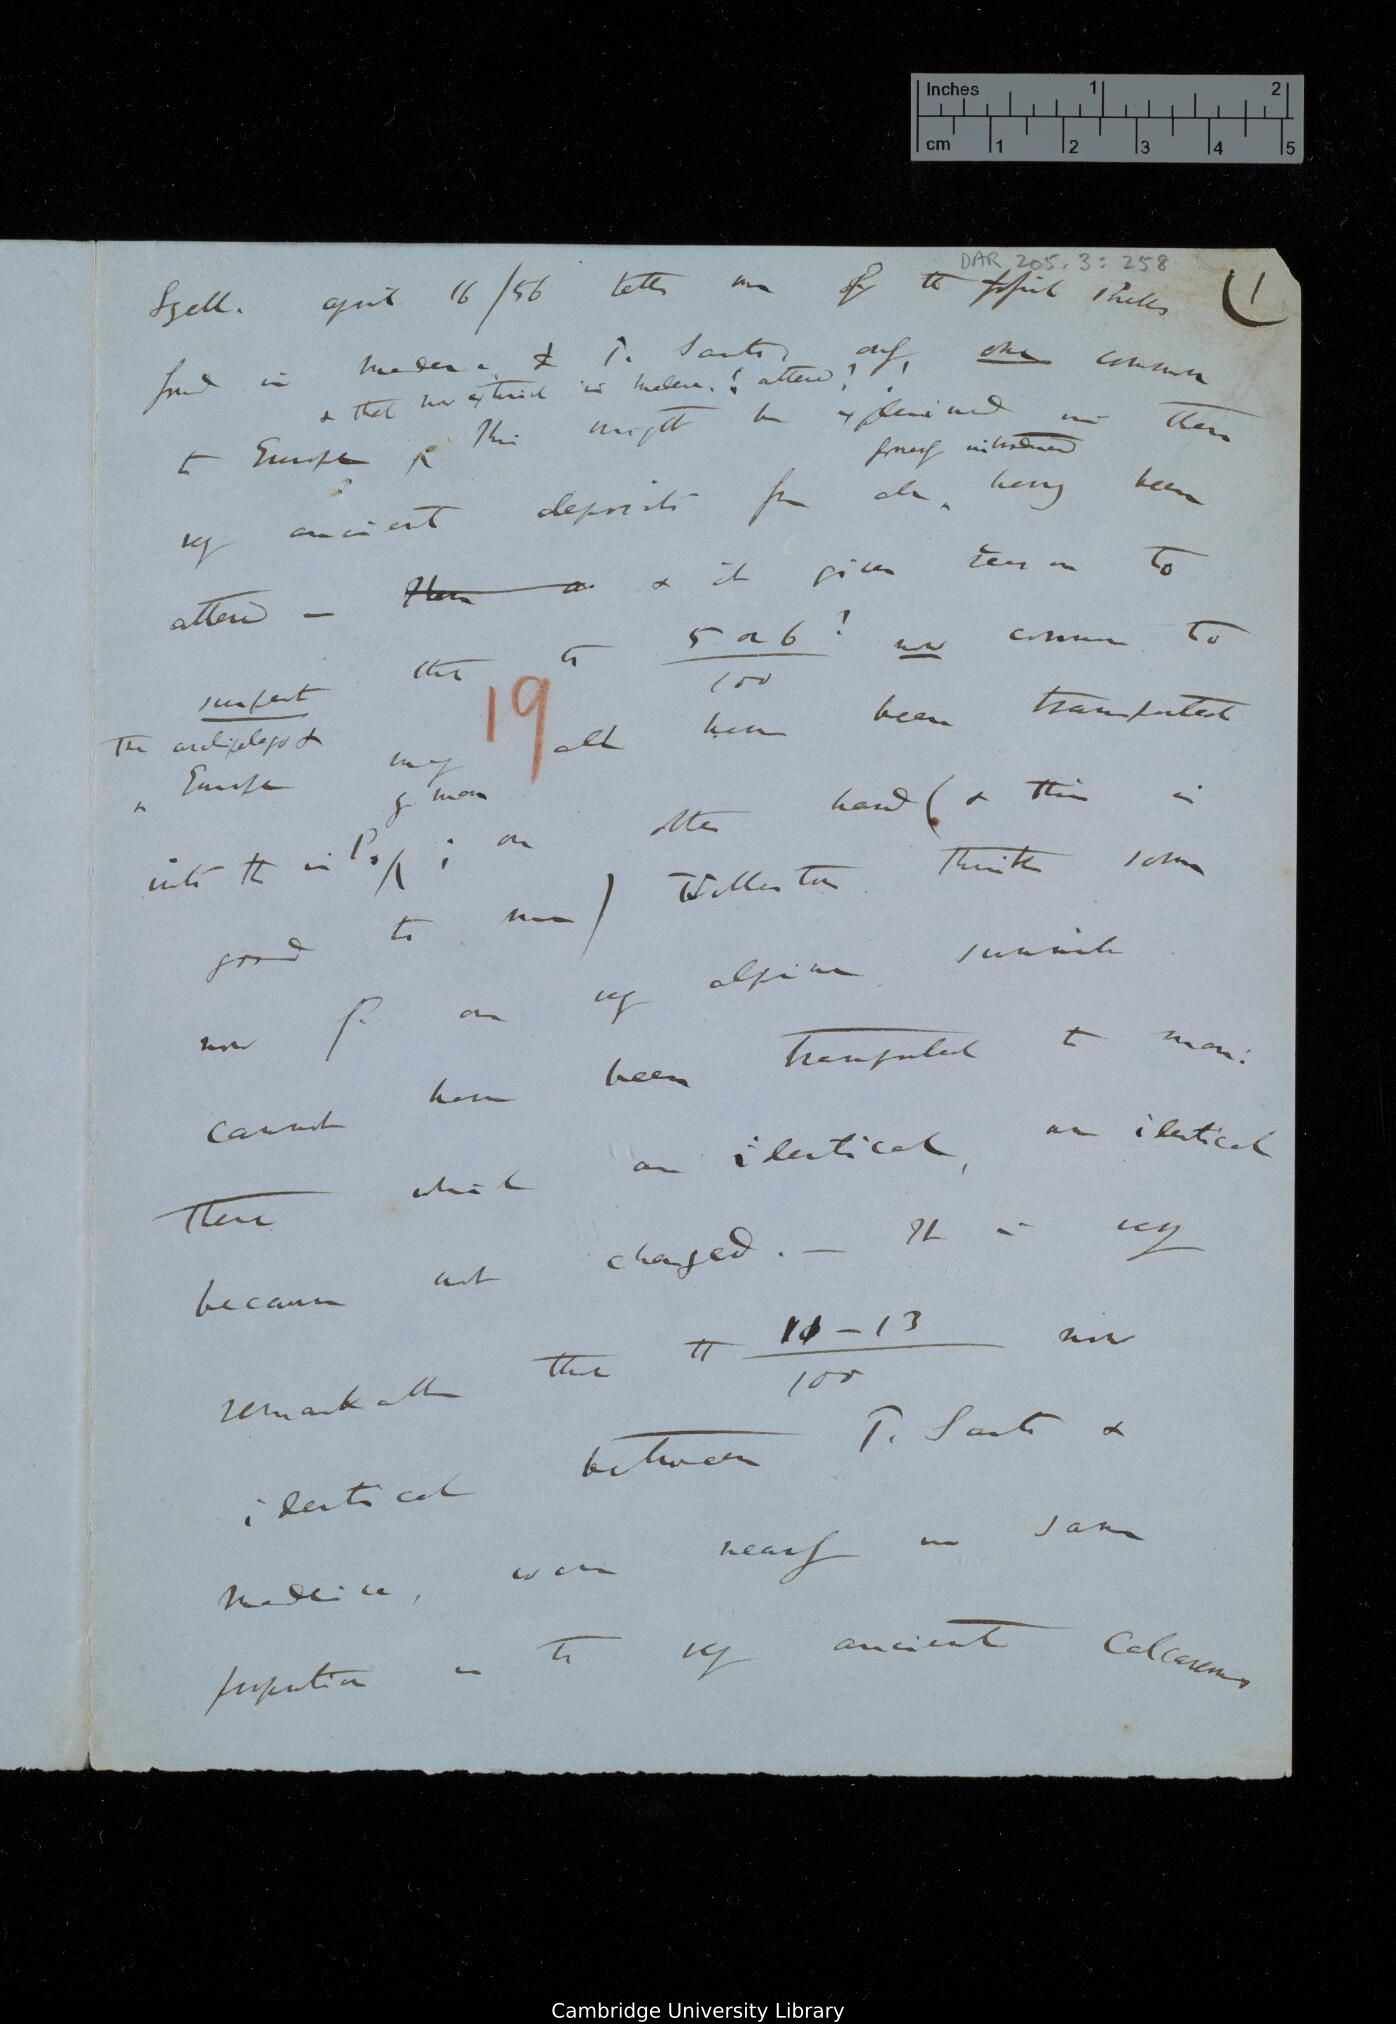 Inches 1 2
cm 1 2 3 4 5
DAR 205.3: 258
(1
Lyell. April 16/56 tells me of the fossil shells
found in Madeira & P. Santo, only one common
& that now extinct in Madeira! altered!!
to Europe; This might be explained in these
formerly introduced
very ancient deposits from also having been
altered — & it gives reason to
suspect that the 5 or 6? / 100 now common to
19
the archipelago &
Europe may all have been transported
by man
into the in P.; on other hand (& this is
good to me) Wollaston thinks some
now f. on very alpine summits
cannot have been transported by man:
these which are identical, are identical
because not changed. — It is very
remarkable that the 11–13 / 100 now
identical between P. Santo &
Madeira, were nearly in same
proportion in the very ancient Calcareous
Cambridge University Library